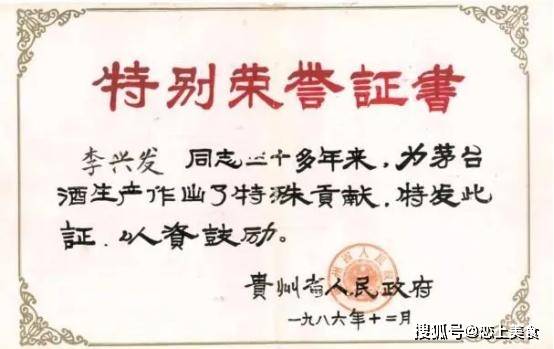 特别荣誉証書
李兴发 同志三十多年来，为茅台
酒生产作出了特殊貢献，特发此
証，以資鼓励。
貴州省人民政府
一九八六年十二月
搜狐号@恋上美食